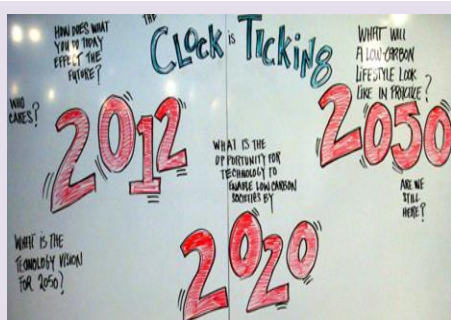 THE
CLOCK is TICKING
HOW DOES WHAT
YOU DO TODAY
EFFECT THE
FUTURE?
WHO
CARES?
2012
WHAT IS THE
TECHNOLOGY VISION
FOR 2050?
WHAT IS THE
OPPORTUNITY FOR
TECHNOLOGY TO
ENABLE LOW CARBON
SOCIETIES BY
2020
WHAT WILL
A LOW-CARBON
LIFESTYLE LOOK
LIKE IN PRACTICE?
2050
ARE WE
STILL
HERE?